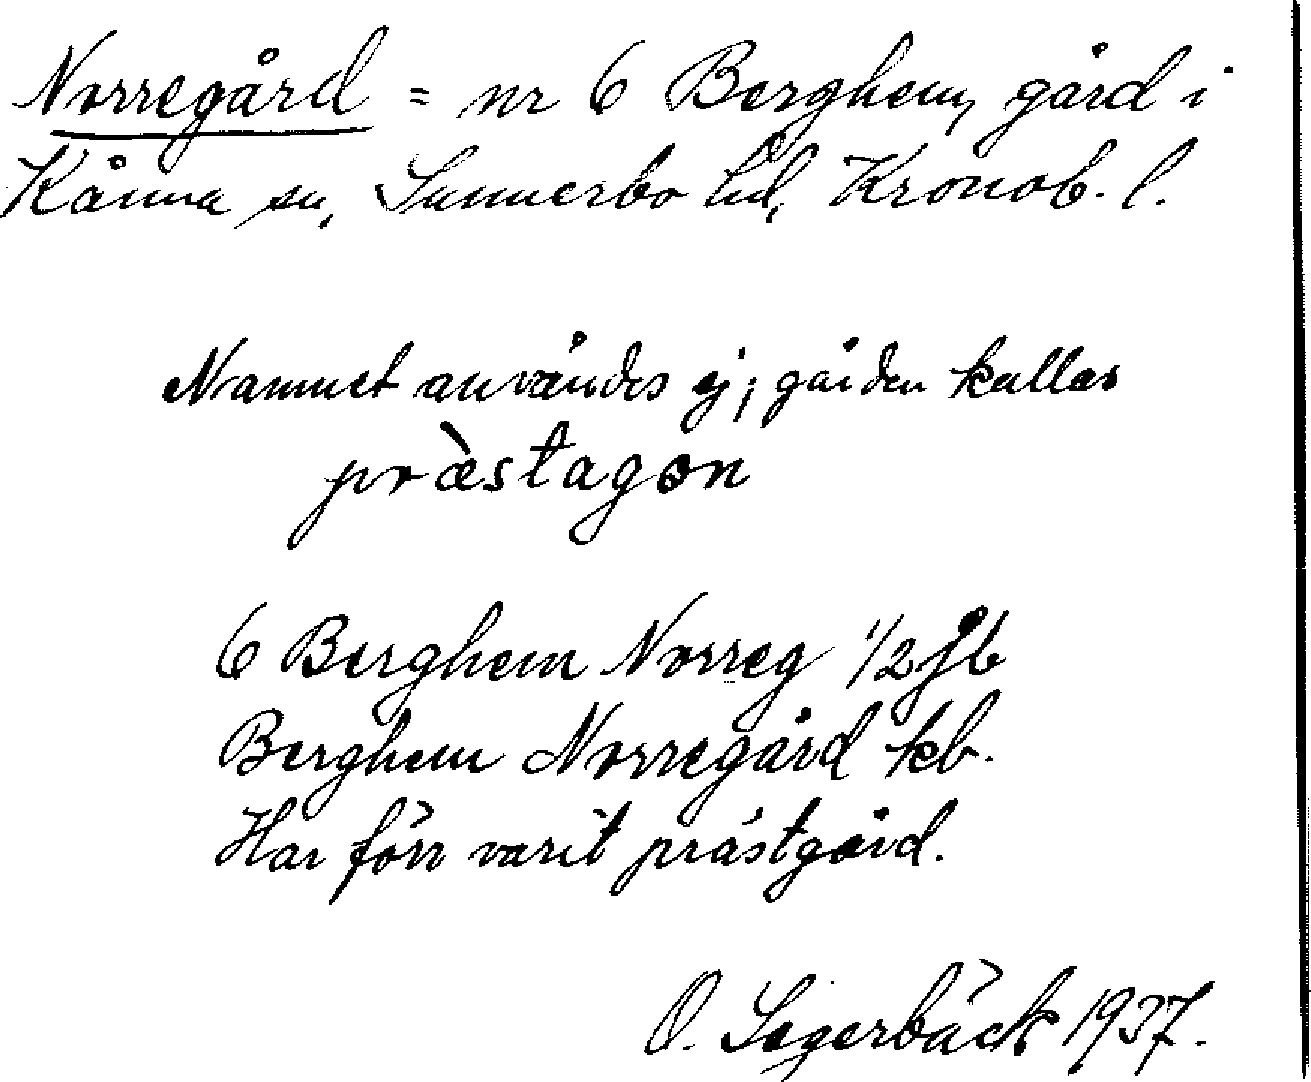 Norregård = nr 6 Berghem, gård i
Kånna sn, Sunnerbo hd, Kronob. l.
Namnet användes ej; gården kallas
præ̀stagɘn
6 Berghem Norreg 1/2 jb
Berghem Norregård kb.
Har förr varit prästgård.
O. Segerbäck 1937.